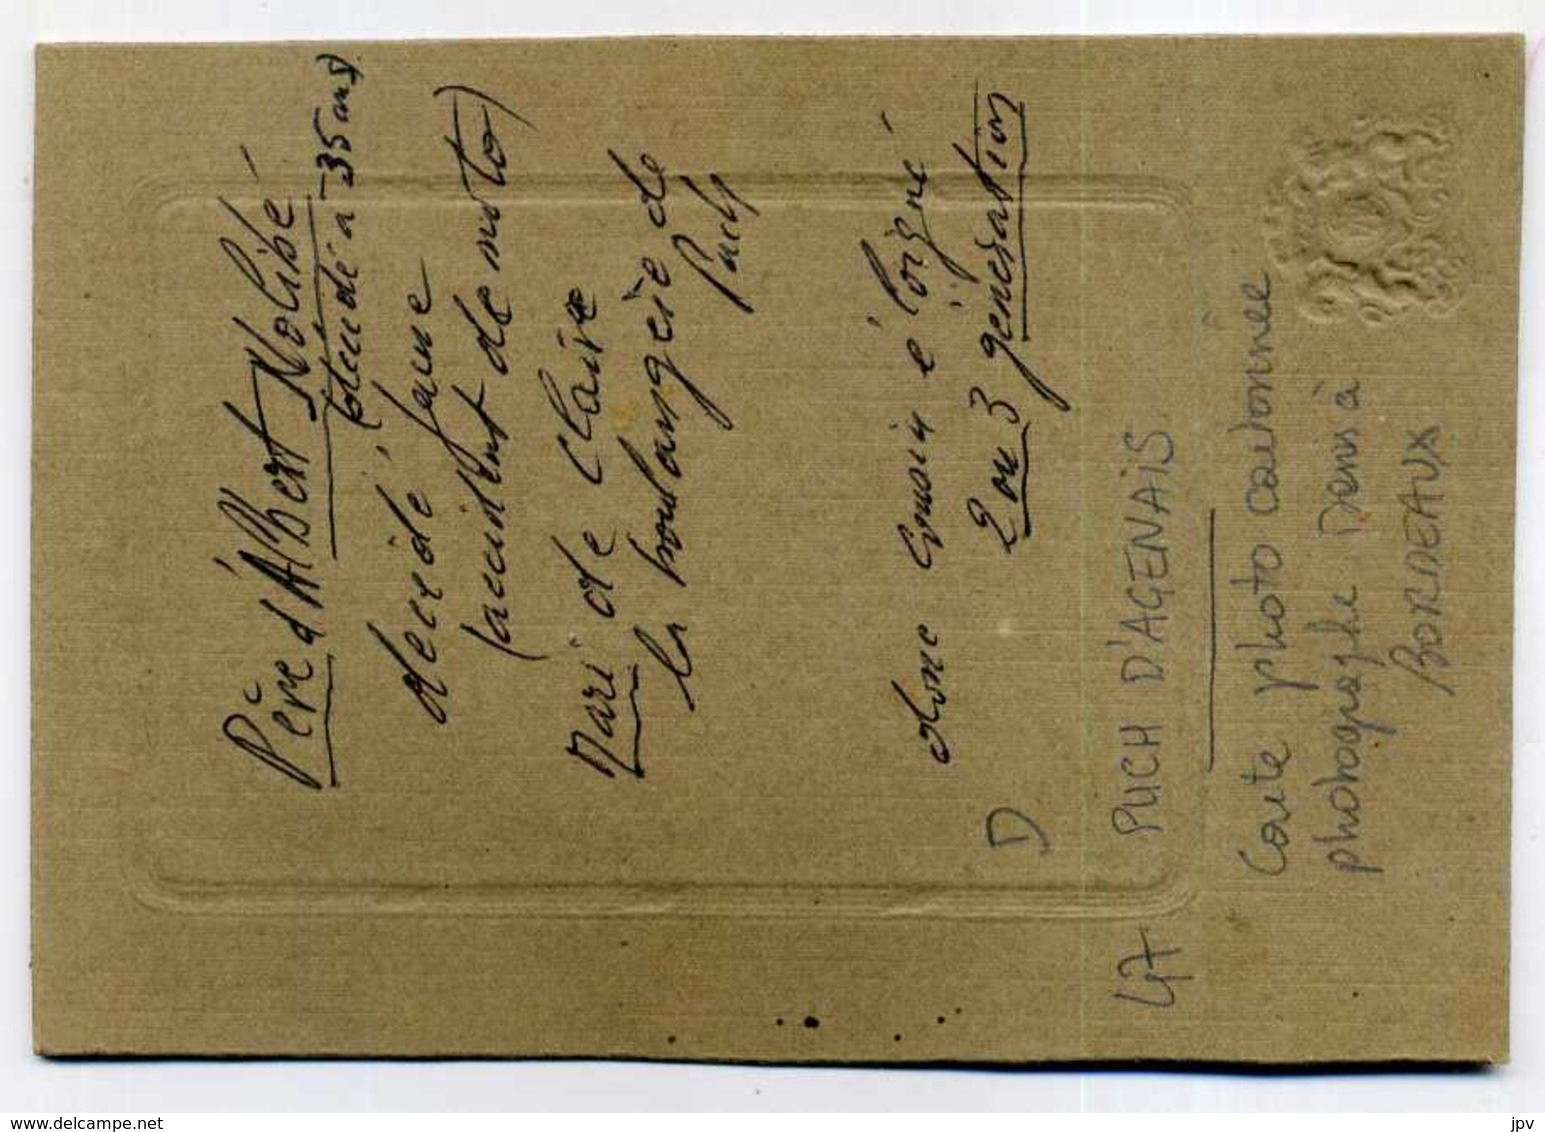 Père d'Albert Nolibé
(décédé à 35 ans)
décédé jeune
(accident de moto)
Mari de Claire
la boulangère de
Puch
donc cousin éloigné
2 ou 3 générations
D
47 PUCH D'AGENAIS
Carte photo cartonnée
photographe Denis à
BORDEAUX
www.delcampe.net
jpv